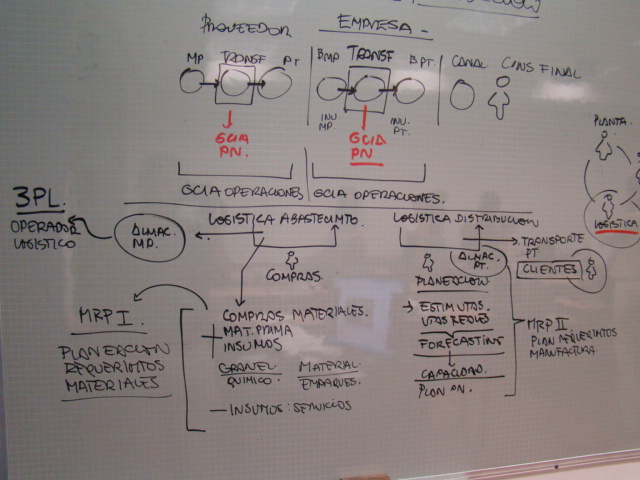 PROVEEDOR
EMPRESA
MP TRANSF PT
BMP TRANSF BPT
CANAL CONS FINAL
INV. MP.
INV. PT.
GCIA PN.
GCIA PN
GCIA OPERACIONES
GCIA OPERACIONES.
PLANTA.
LOGISTICA
3PL.
OPERADOR
LOGISTICO
ALMAC.
MP.
LOGISTICA ABASTECIMTO.
LOGISTICA DISTRIBUCION
COMPRAS
ALMAC.
PT.
TRANSPORTE
PT
CLIENTES
PLANEACION
MRP I.
PLANEACION
REQUERIMTOS
MATERIALES
COMPRAS MATERIALES.
MAT. PRIMA
INSUMOS
GRANEL
QUIMICO.
MATERIAL
EMPAQUES.
— INSUMOS: SERVICIOS
ESTIM VTAS.
VTAS REALES
FORECASTING
CAPACIDAD.
PLAN PN.
MRP II
PLAN REQUERIMTOS
MANUFACTURA.